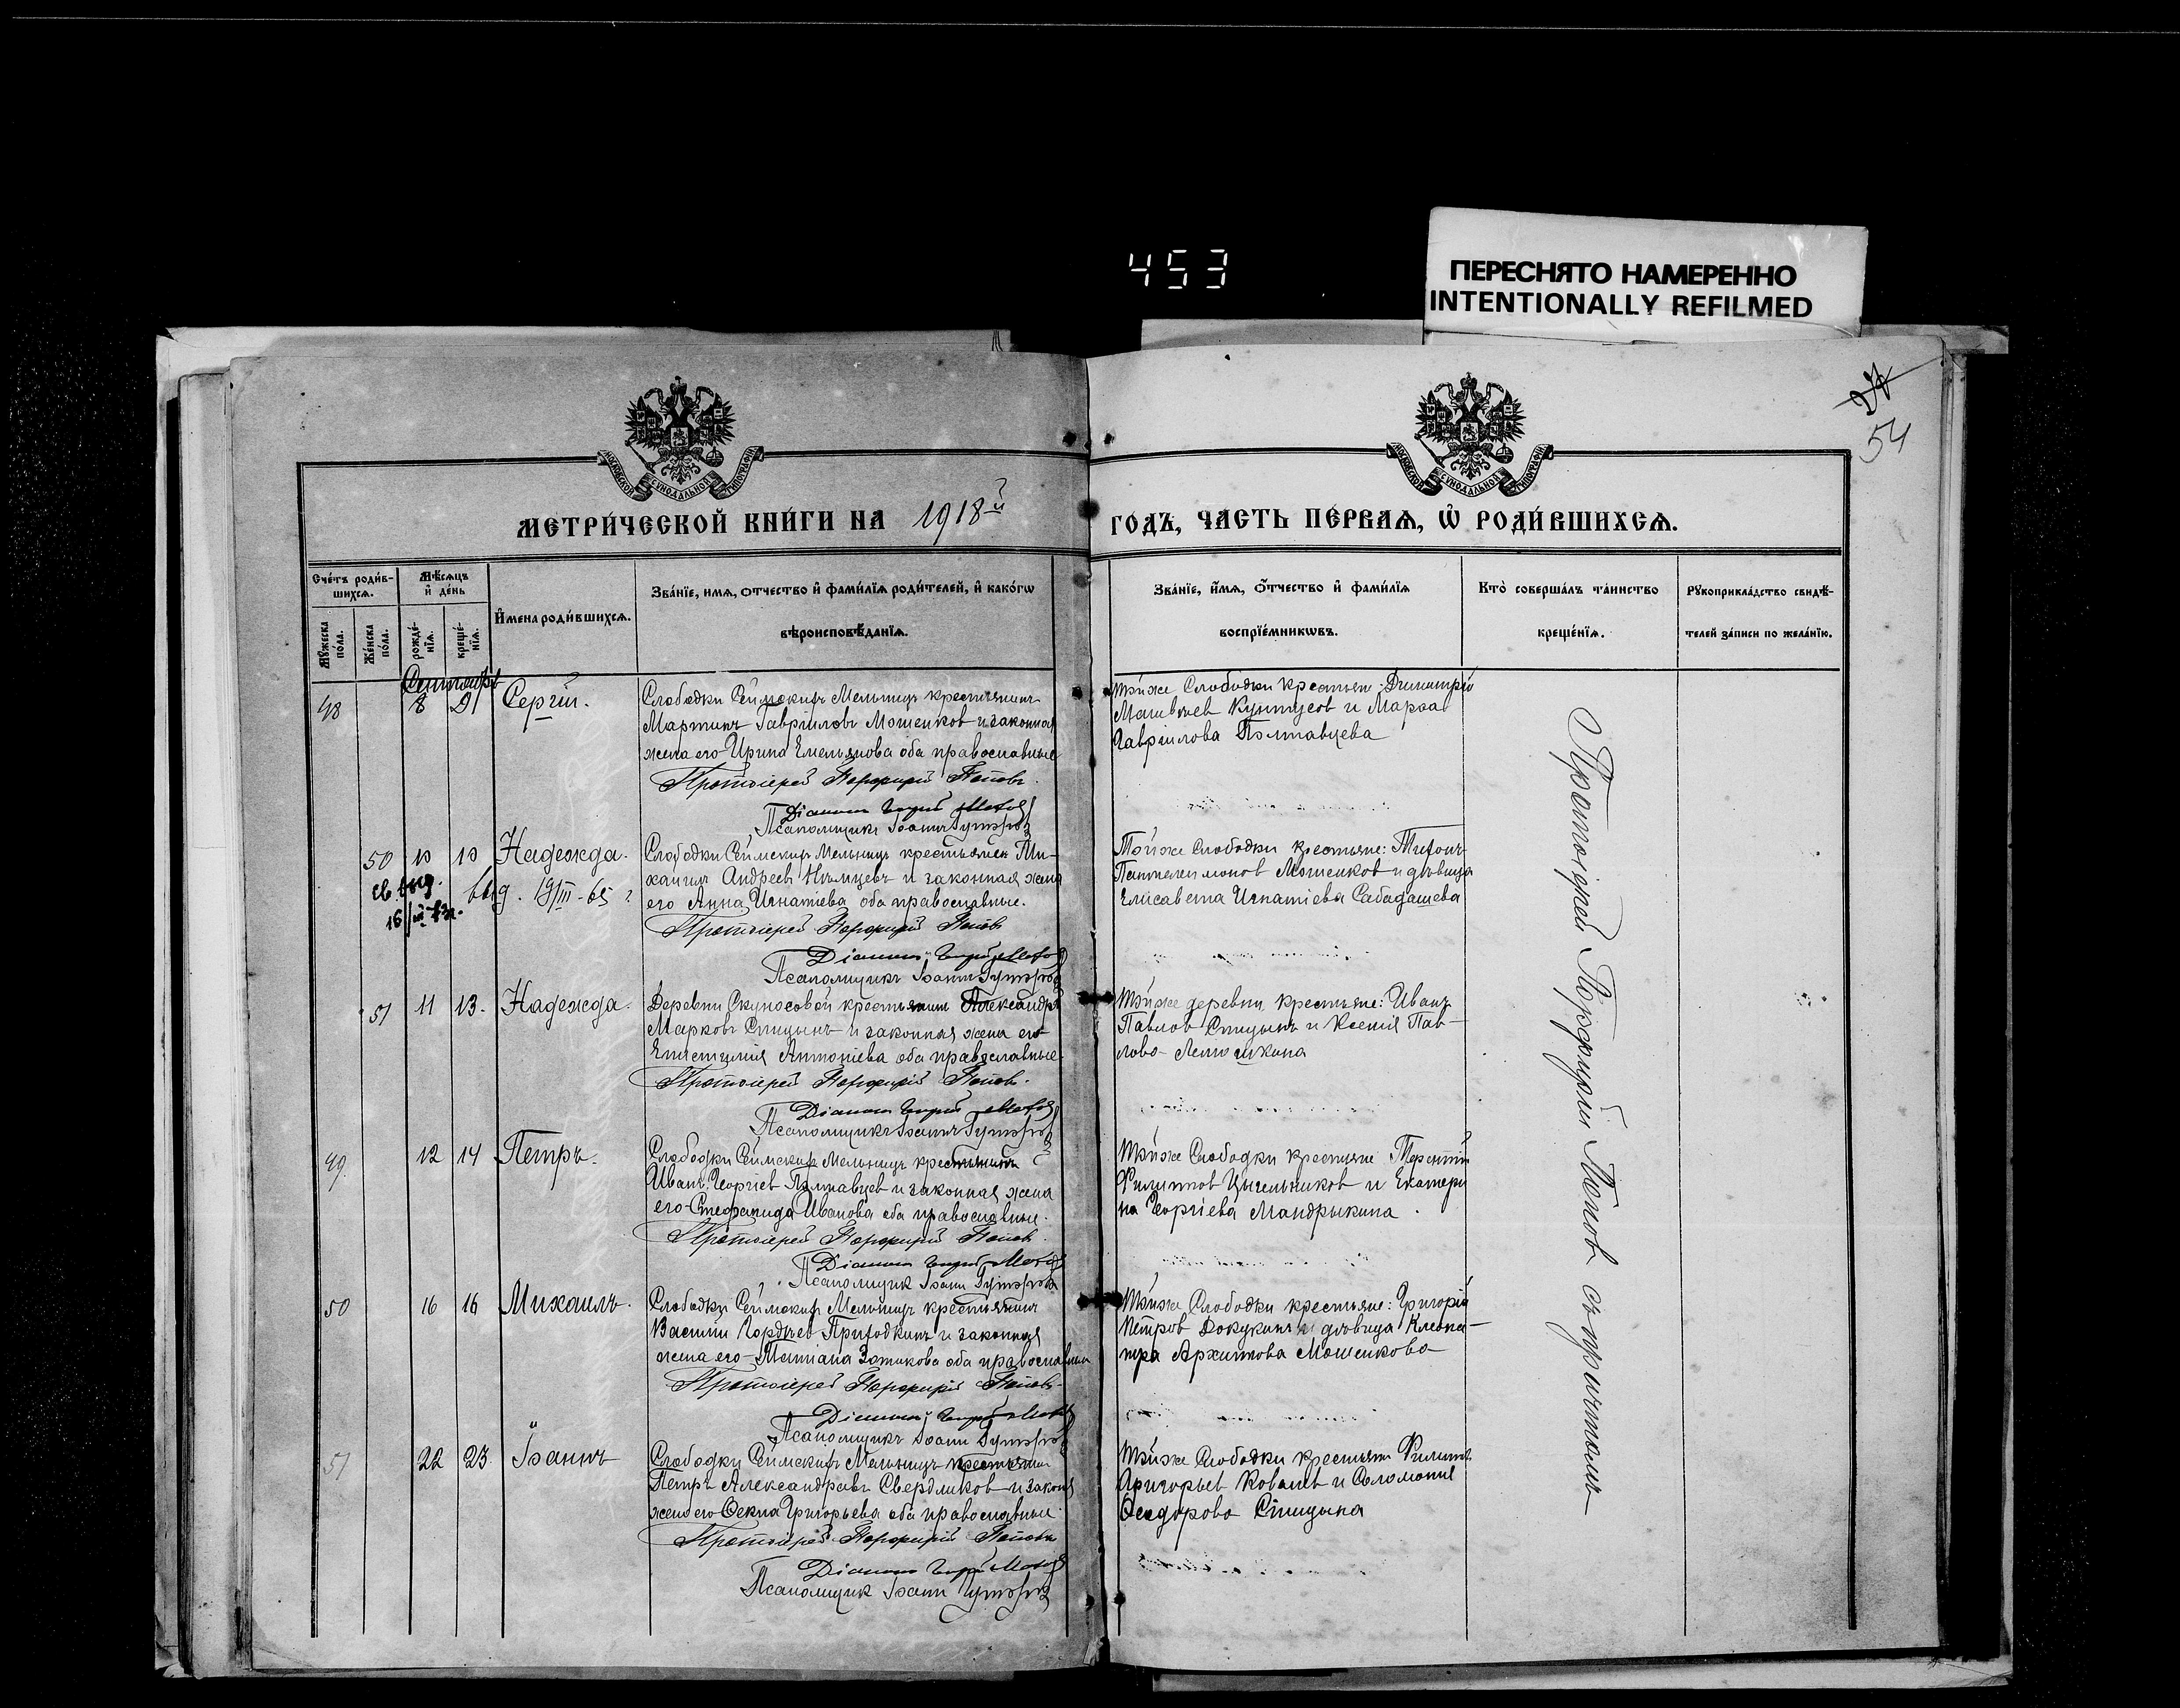 453
ПЕРЕСНЯТО НАМЕРЕННО
INTENTIONALLY REFILMED
54
МЕТРИ́ЧЕСКОЙ КНИ́ГИ НА 1918й ГОДЪ, ЧАСТЬ ПЕ́РВАѦ, Ѡ҆ РОДИ́ВШИХСѦ.
Сче́тъ роди́в-
шихсѧ.
Мѣ́сѧцъ
и҆ де́нь
Мꙋ́жеска по́ла.
Же́нска по́ла.
рожде́-
нїѧ.
креще́-
нїѧ.
И҆мена роди́вшихсѧ.
Зва́нїе, имѧ, ѻтчество и҆ фами́лїѧ роди́телей, и҆ како́гѡ
вѣроисповѣ́данїѧ.
Зва́нїе, и҆́мѧ, ѻ҆́тчество и҆ фами́лїѧ
воспрїе́мникѡвъ.
Кто̀ соверша́лъ та́инство
креще́нїѧ.
Рꙋкоприкла́дство свидѣ́-
телей за́писи по жела́нїю.
Сентябрь
48 8 Сергій.
Слободки Сеймскихъ Мельницъ крестьянинъ
Мартинъ Гавріиловъ Мошенков и законная
жена его Ирина Емельянова оба православные
Протоіерей Порфирій Поповъ.
Діаконъ
Псаломщикъ Іоаннъ
Тойже Слободки крестьяне: Димитрій
Матвѣев и Марѳа
Гавріилова Полтавцева
50 10 10 Надежда.
св. выд.
выд. 19/III-65 г
Слободки Сеймскихъ Мельницъ крестьянин Ми-
хаилъ Андреев Нѣмцевъ и законная жена
его Анна Игнатіева оба православные.
Протоіерей Порфирій Попов
Діаконъ
Псаломщикъ Іоаннъ
Тойже Слободки крестьяне: Тихонъ
Пантелеимонов Мошенков и дѣвица
Елисавета Игнатіева Сабадашева
51 11 13. Надежда.
Деревни крестьянин Александръ
Марковъ Спицынъ и законная жена его
Антоніева оба православные.
Протоіерей Порфирій Попов.
Діаконъ
Псаломщикъ Іоаннъ
Тойже деревни крестьяне: Иванъ
Павлов Спицынъ и Ксенія Пав-
лова
49. 12 14 Петръ.
Слободки Сеймскихъ Мельницъ крестьянинъ
Иванъ Георгіев Полтавцев и законная жена
его Стефанида Иванова оба православные.
Протоіерей Порфирій Попов.
Діаконъ
Псаломщик Іоанн
Тойже Слободки крестьяне Терентій
Филиппов и Екатери
на Георгіева Мандрыкина.
50 16 16 Михаилъ.
Слободки Сеймскихъ Мельницъ крестьянинъ
Василій Гордѣев Приходкинъ и законная
жена его Татіана оба православные
Протоіерей Порфирій Поповъ.
Діаконъ
Псаломщикъ Іоанн
Тойже Слободки крестьяне: Григорій
Петров Докукинъ и дѣвица Клеопа-
тра Архипова Мошенкова
51 22 23. Іоаннъ
Слободки Сеймскихъ Мельницъ крестьянин
Петръ Александровъ Свердликов и законная
жена его Ѳекла Григорьева оба православные.
Протоіерей Порфирій Поповъ
Діаконъ
Псаломщик Іоанн
Тойже Слободки крестьяне Филиппъ
Григорьев Ковалев и Соломонія
Ѳеодорова Спицына
Протоіерей Порфирій Попов съ причтомъ